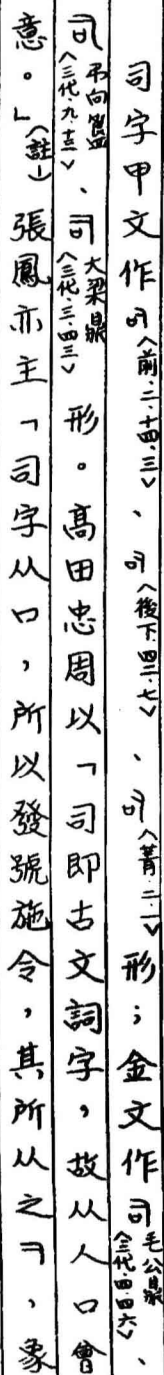 司字甲文作司〈前.二.十四.三〉、司〈後下.四二.七〉、司〈菁.二.一〉形；金文作司毛公鼎〈三代.四.四六〉、
司弔向簋〈三代.九.十三〉、司大梁鼎〈三代.三.四三〉形。高田忠周以「司即古文詞字，故从人口會
意。」〈註1〉張鳳亦主「司字从口，所以發號施令，其所从之㇆，象